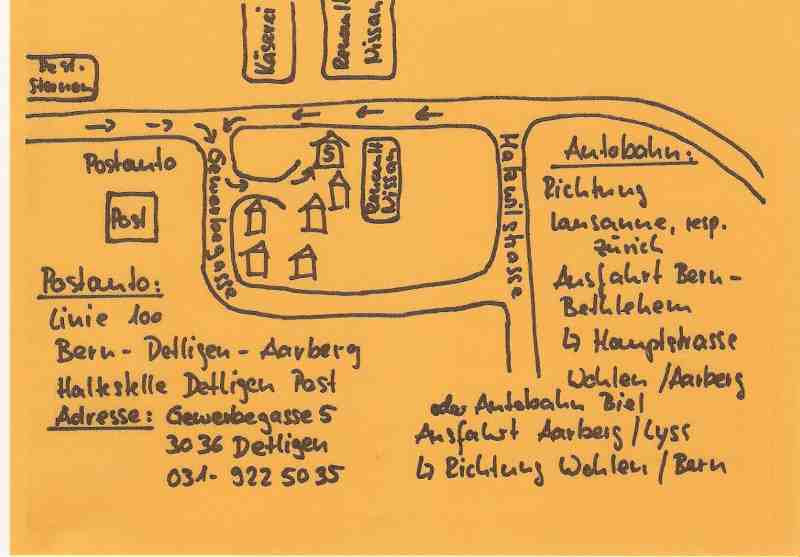 Käserei
Renault
Nissan
Rest.
Sternen
Postauto
Post
Gewerbegasse
5
Renault
Nissan
Matzwilstrasse
Autobahn:
Richtung
Lausanne, resp.
Zürich
Ausfahrt Bern-
Bethlehem
↳ Hauptstrasse
Wohlen / Aarberg
oder Autobahn Biel
Ausfahrt Aarberg / Lyss
↳ Richtung Wohlen / Bern
Postauto:
Linie 100
Bern - Detligen - Aarberg
Haltestelle Detligen Post
Adresse: Gewerbegasse 5
3036 Detligen
031- 922 50 95